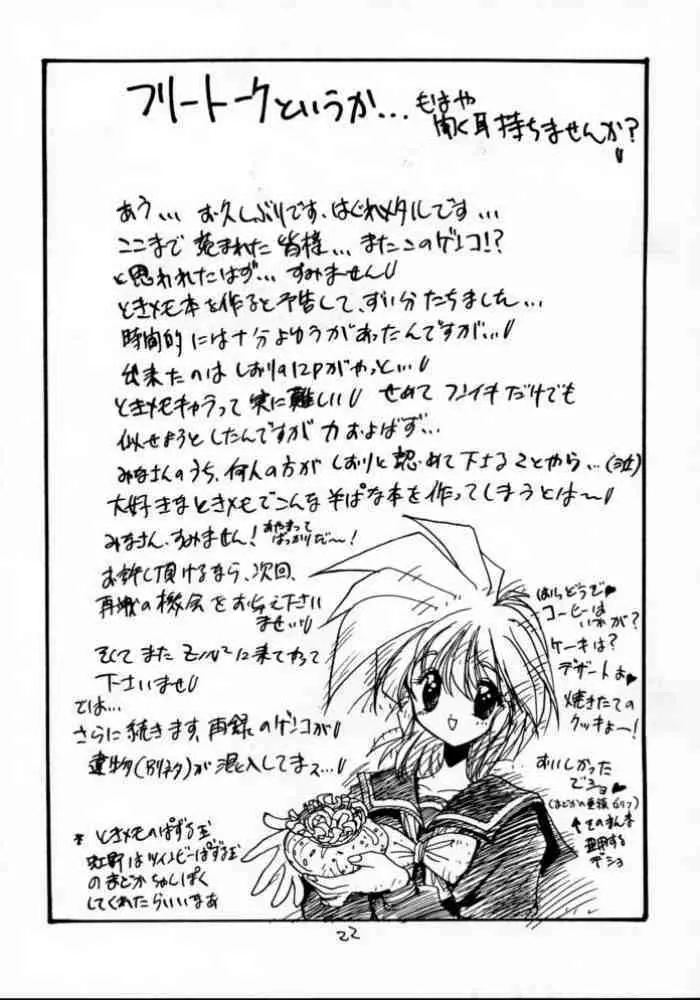 フリートークというか... もはや
聞く耳持ちませんか?
あう... お久しぶりです、はぐれメタルです...
ここまで 読まれた 皆様... またこのゲンコ!?
と思われたはず... すみません
ときメモ本を作ると予告して、ずい分たちました...
時間的には十分よゆうがあったんですが...
出来たのは しおりの12Pがやっと...
ときメモキャラって 実に難しい せめて フンイキ だけでも
似せようとしたんですが 力 およばず...
みなさんのうち、何人の方が しおりと認めて下さることやら...(泣)
大好きなときメモでこんな そぱな本を作ってしまうとは〜
みなさん、すみません! あやまって
ばっかりだ〜!
お許し頂けるなら、次回、
再戦の機会を お与え下さい
ませ
そして また に来てやって
下さいませ
では...
さらに続きます、再録のゲンコが
遺物(Bリネタ)が 混入してます...
* ときメモのぱずる玉
虹野はツインビーぱずる玉
の まどか ちゃん ぽく
してくれたら いいなあ
はい どうぞ♥
コーヒーは
いかが?
ケーキは?
デザートよ♥
焼きたての
クッキーよー!
おいしかった
でショ♥
(まどかの連鎖セリフ)
↑そのまんま
通用する
デショ
22